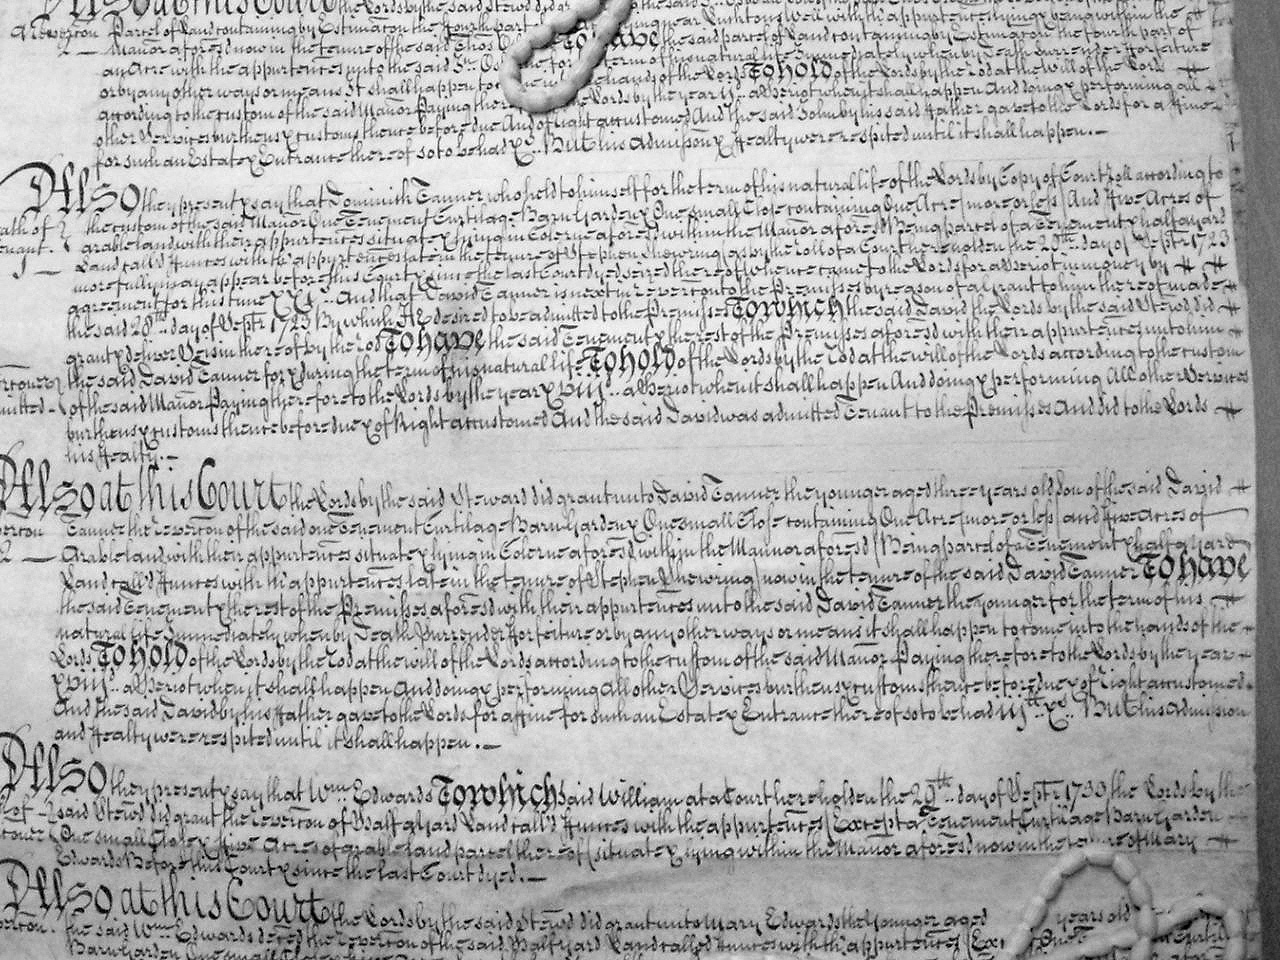 Also at this Court the Lords by the said Stewd did
Parcel of Land containing by Estimation the fourth part
Manor aforesd now in the tenure of the said To have the said parcel of Land containing by Estimation the fourth part of
an Acre with the appurtences unto the said for term of his natural life Immediately when by Death Surrender Forfeiture
or by any other ways or means It shall happen to hands of the Lords To hold of the Lords by the Rod at the will of the Lords
according to the custom of the said Manor Paying there the Lords by the year a Heriot when it shall happen And doing & performing all
other Services burthens & customs thence before due And of right accustomed And the said John by his said Father gave to the Lords for a Fine
for such an Estate & Entrance thereof so to be had But his Admission & Fealty were respited until it shall happen.
Also they present & say that Dominick Tanner who held to himself for the term of his natural life of the Lords by Copy of Court Roll according to
the custom of the said Manor One Tenement Curtilage Barn Garden & One small Close containing One Acre (more or less) And Five Acres of
arable land with their appurtences situate & lying in Colerne aforesd within the Manor aforesd (Being parcel of a Tenement & half a yard
Land call'd Hunces with th' appurtences late in the tenure of Stephen Shewring) as by the roll of a Court here holden the 20th day of Septr 1723
more fully may appear before this Court & since the last Court dyed seized thereof whence came to the Lords for a Heriot in money by
agreement for this time XXs.. And that David Tanner is next in reverton to the Premisses by reason of a Grant to him thereof made
the said 20th.. day of Septr 1723 By which He desired to be admitted to the Premisses To which the said David the Lords by the said Stewd did
grant & deliver Seisin thereof by the Rod To have the said Tenement & the rest of the Premisses aforesd with their appurtences unto him
the said David Tanner for & during the term of his natural life To hold of the Lords by the Rod at the will of the Lords according to the custom
of the said Manor Paying therefore to the Lords by the year xviijs.. a Heriot when it shall happen And doing & performing All other Services
burthens & customs thence before due & of Right accustomed And the said David was admitted Tenant to the Premisses And did to the Lords
his Fealty.
Also at this Court the Lords by the said Steward did grant unto David Tanner the younger aged three years old Son of the said David
Tanner the reverton of the said one Tenement Curtilage Barn Garden & One small Close containing One Acre (more or less) and Five Acres of
Arable land with their appurtences situate & lying in Colerne aforesd within the Mannor aforesd (Being parcel of a Tenement & half a yard
Land call'd Hunces with th' appurtences late in the tenure of Stephen Shewring) now in the tenure of the said David Tanner To have
the said Tenement & the rest of the Premisses aforesd with their appurtences unto the said David Tanner the younger for the term of his
natural life Immediately when by Death Surrender Forfeiture or by any other ways or means it shall happen to come into the hands of the
Lords To hold of the Lords by the Rod at the will of the Lords according to the custom of the said Manor Paying therefore to the Lords by the year
xviijs.. a Heriot when it shall happen And doing & performing All other Services burthens & customs thence before due & of right accustomed
And the said David by his Father gave to the Lords for a Fine for such an Estate & Entrance thereof so to be had But his Admission
and Fealty were respited until it shall happen.
Also they present & say that Wm Edwards To which said William at a Court here holden the 29th.. day of Septr 1730 the Lords by the
said Stewd did grant the reverton of Half a yard Land call'd Hunces with the appurtences (Except a Tenement Curtilage Barn Garden
One small Close & Five Acres of arable land parcel thereof) situate & lying within the Manor aforesd now in the of Mary
Edwards Before this Court & since the last Court dyed.
Also at this Court the Lords by the said Stewd did grant unto Mary Edwards the Younger aged years old
the said Wm Edwards decd the reverton of the said Half yard Land called Hunces with th' appurtences
Barn Garden One small Close